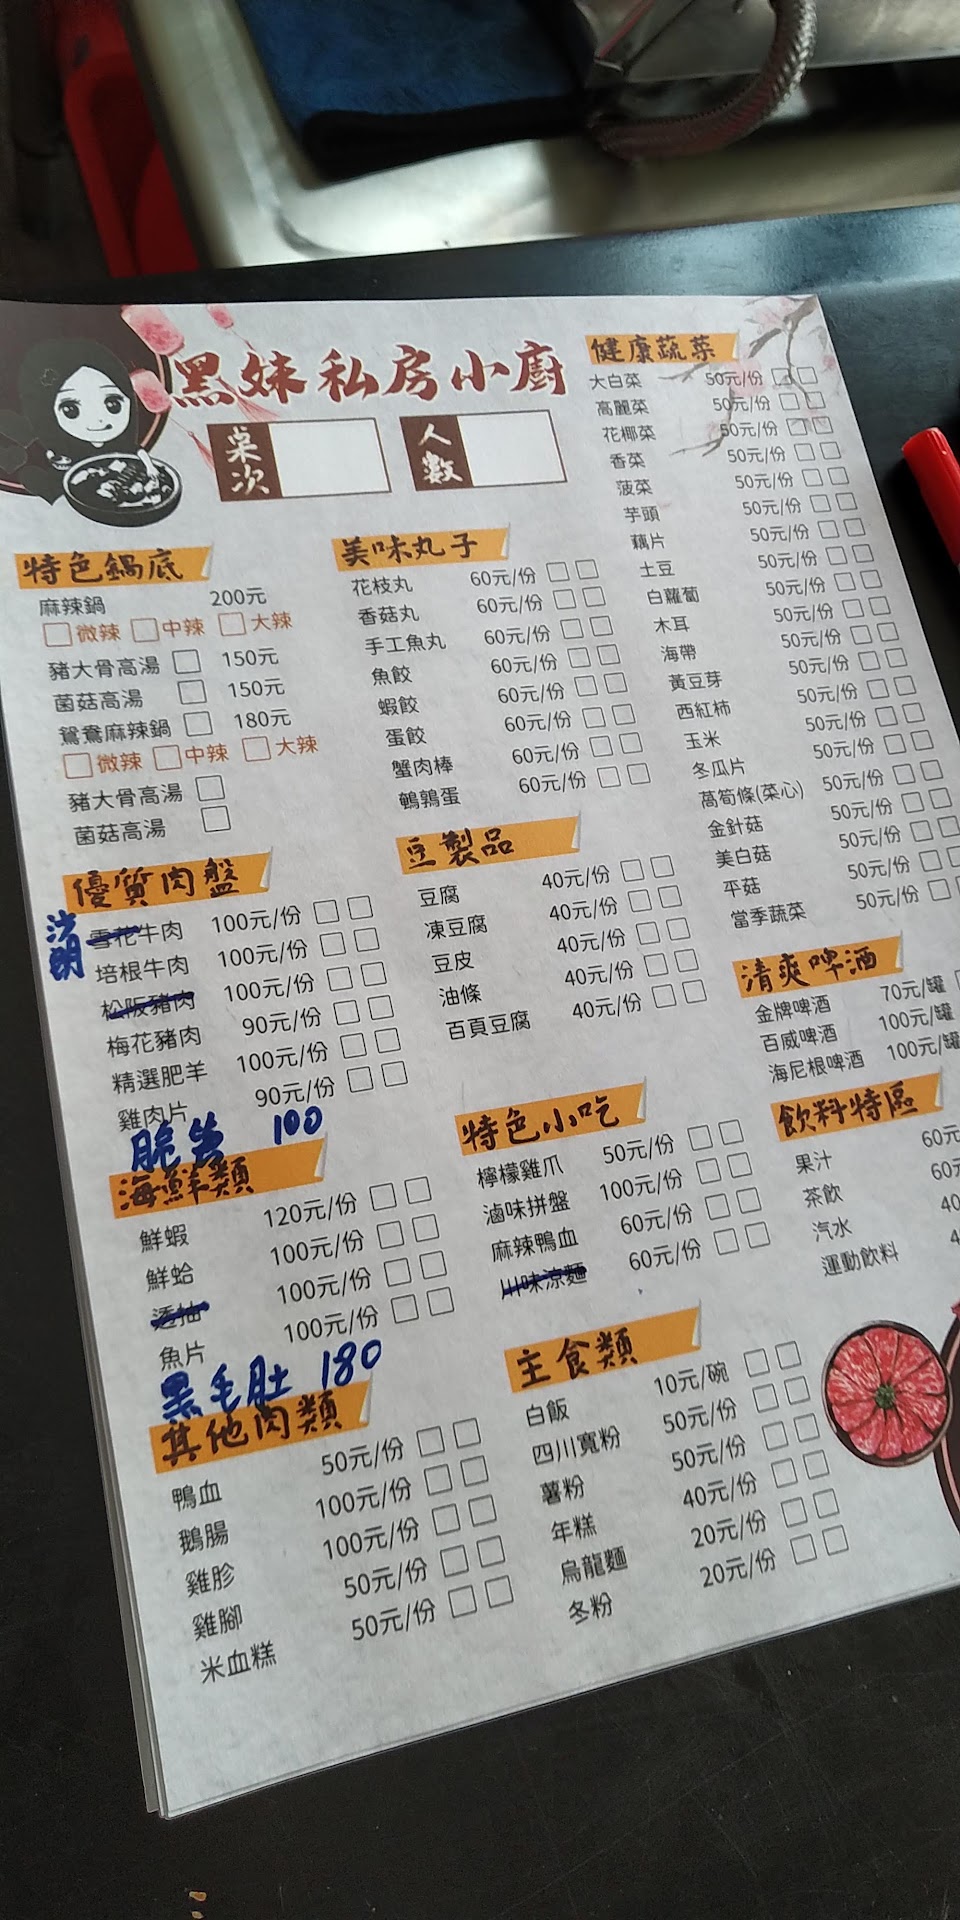 黑妹私房小廚
桌次
人數
特色鍋底
麻辣鍋 200元
微辣 中辣 大辣
豬大骨高湯 150元
菌菇高湯 150元
鴛鴦麻辣鍋 180元
微辣 中辣 大辣
豬大骨高湯
菌菇高湯
優質肉盤
沙朗
雪花牛肉 100元/份
培根牛肉 100元/份
松阪豬肉 100元/份
梅花豬肉 90元/份
精選肥羊 100元/份
雞肉片 90元/份
脆 100
海鮮類
鮮蝦 120元/份
鮮蛤 100元/份
透抽 100元/份
魚片 100元/份
黑毛肚 180
其他肉類
鴨血 50元/份
鵝腸 100元/份
雞胗 100元/份
雞腳 50元/份
米血糕 50元/份
美味丸子
花枝丸 60元/份
香菇丸 60元/份
手工魚丸 60元/份
魚餃 60元/份
蝦餃 60元/份
蛋餃 60元/份
蟹肉棒 60元/份
鵪鶉蛋 60元/份
豆製品
豆腐 40元/份
凍豆腐 40元/份
豆皮 40元/份
油條 40元/份
百頁豆腐 40元/份
特色小吃
檸檬雞爪 50元/份
滷味拼盤 100元/份
麻辣鴨血 60元/份
川味涼麵 60元/份
主食類
白飯 10元/碗
四川寬粉 50元/份
薯粉 50元/份
年糕 40元/份
烏龍麵 20元/份
冬粉 20元/份
健康蔬菜
大白菜 50元/份
高麗菜 50元/份
花椰菜 50元/份
香菜 50元/份
菠菜 50元/份
芋頭 50元/份
藕片 50元/份
土豆 50元/份
白蘿蔔 50元/份
木耳 50元/份
海帶 50元/份
黃豆芽 50元/份
西紅柿 50元/份
玉米 50元/份
冬瓜片 50元/份
萵筍條(菜心) 50元/份
金針菇 50元/份
美白菇 50元/份
平菇 50元/份
當季蔬菜 50元/份
清爽啤酒
金牌啤酒 70元/罐
百威啤酒 100元/罐
海尼根啤酒 100元/罐
飲料特區
果汁 60元
茶飲 60元
汽水 40
運動飲料 4